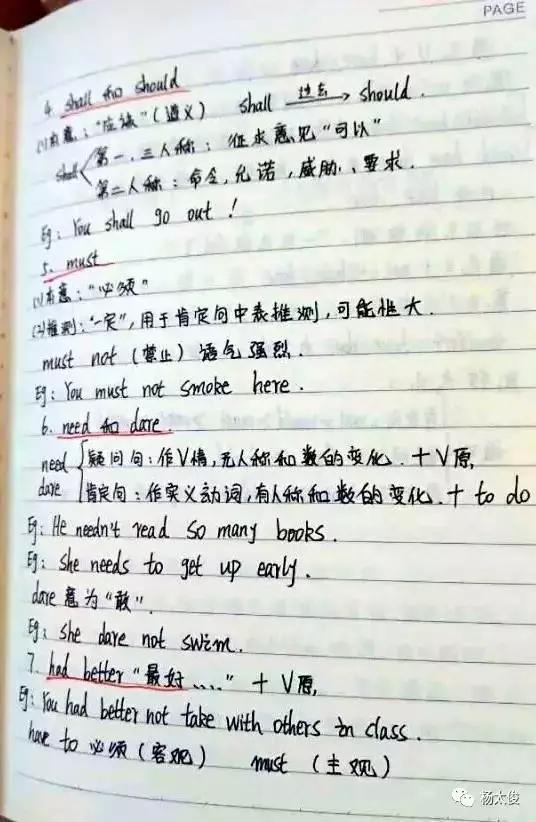 PAGE
4. shall 和 should
(1)本意："应该"(道义) shall 过去 should.
shall 第一、三人称：征求意见"可以"
第二人称：命令,允诺,威胁、要求.
Eg: You shall go out!
5. must
(1)本意："必须"
(2)推测："一定",用于肯定句中表推测,可能性大.
must not (禁止) 语气强烈.
Eg: You must not smoke here.
6. need 和 dare.
need 疑问句：作V情,无人称和数的变化.+V原,
dare 肯定句：作实义动词,有人称和数的变化.+ to do
Eg: He needn't read so many books.
Eg: she needs to get up early.
dare 意为"敢".
Eg: she dare not swim.
7. had better "最好...." + V原,
Eg: You had better not take with others in class.
have to 必须(客观) must (主观)
杨太俊